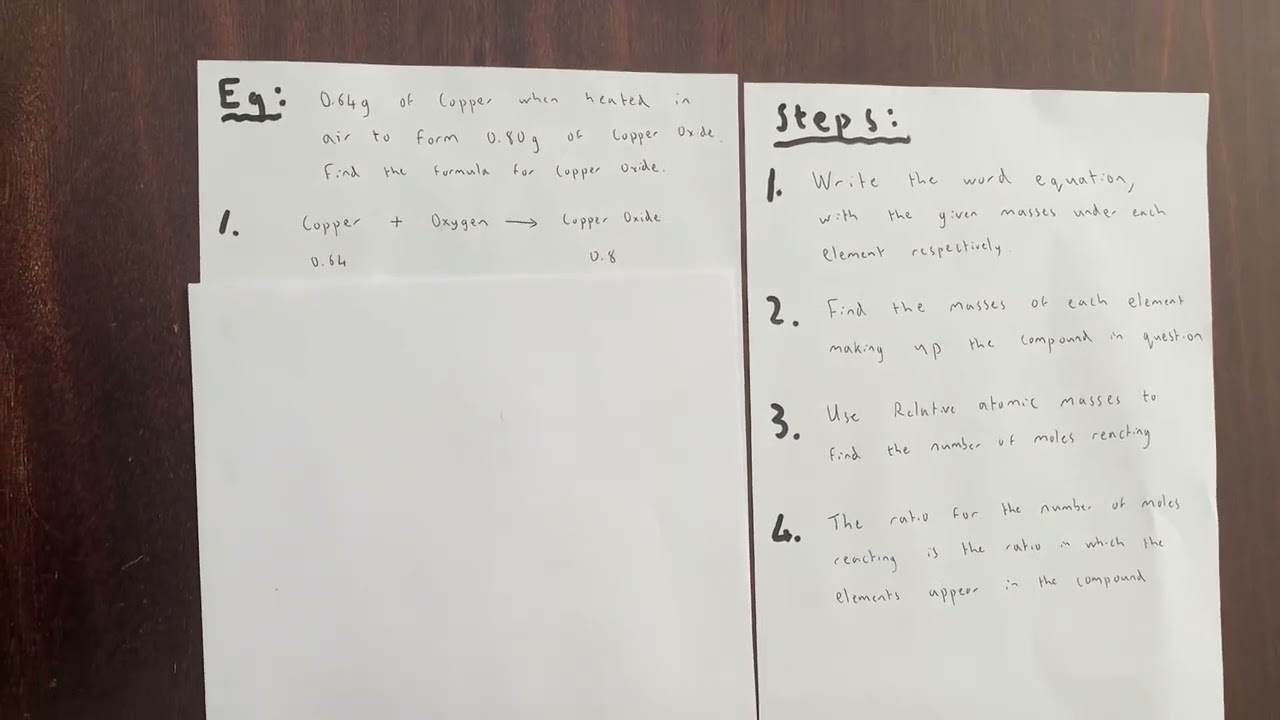 Eg: 0.64g of Copper when heated in
air to form 0.80g of Copper Oxide.
Find the formula for Copper Oxide.
1. Copper + Oxygen ⟶ Copper Oxide
0.64 0.8
Steps:
1. Write the word equation,
with the given masses under each
element respectively.
2. Find the masses of each element
making up the compound in question
3. Use Relative atomic masses to
find the number of moles reacting
4. The ratio for the number of moles
reacting is the ratio in which the
elements appear in the compound